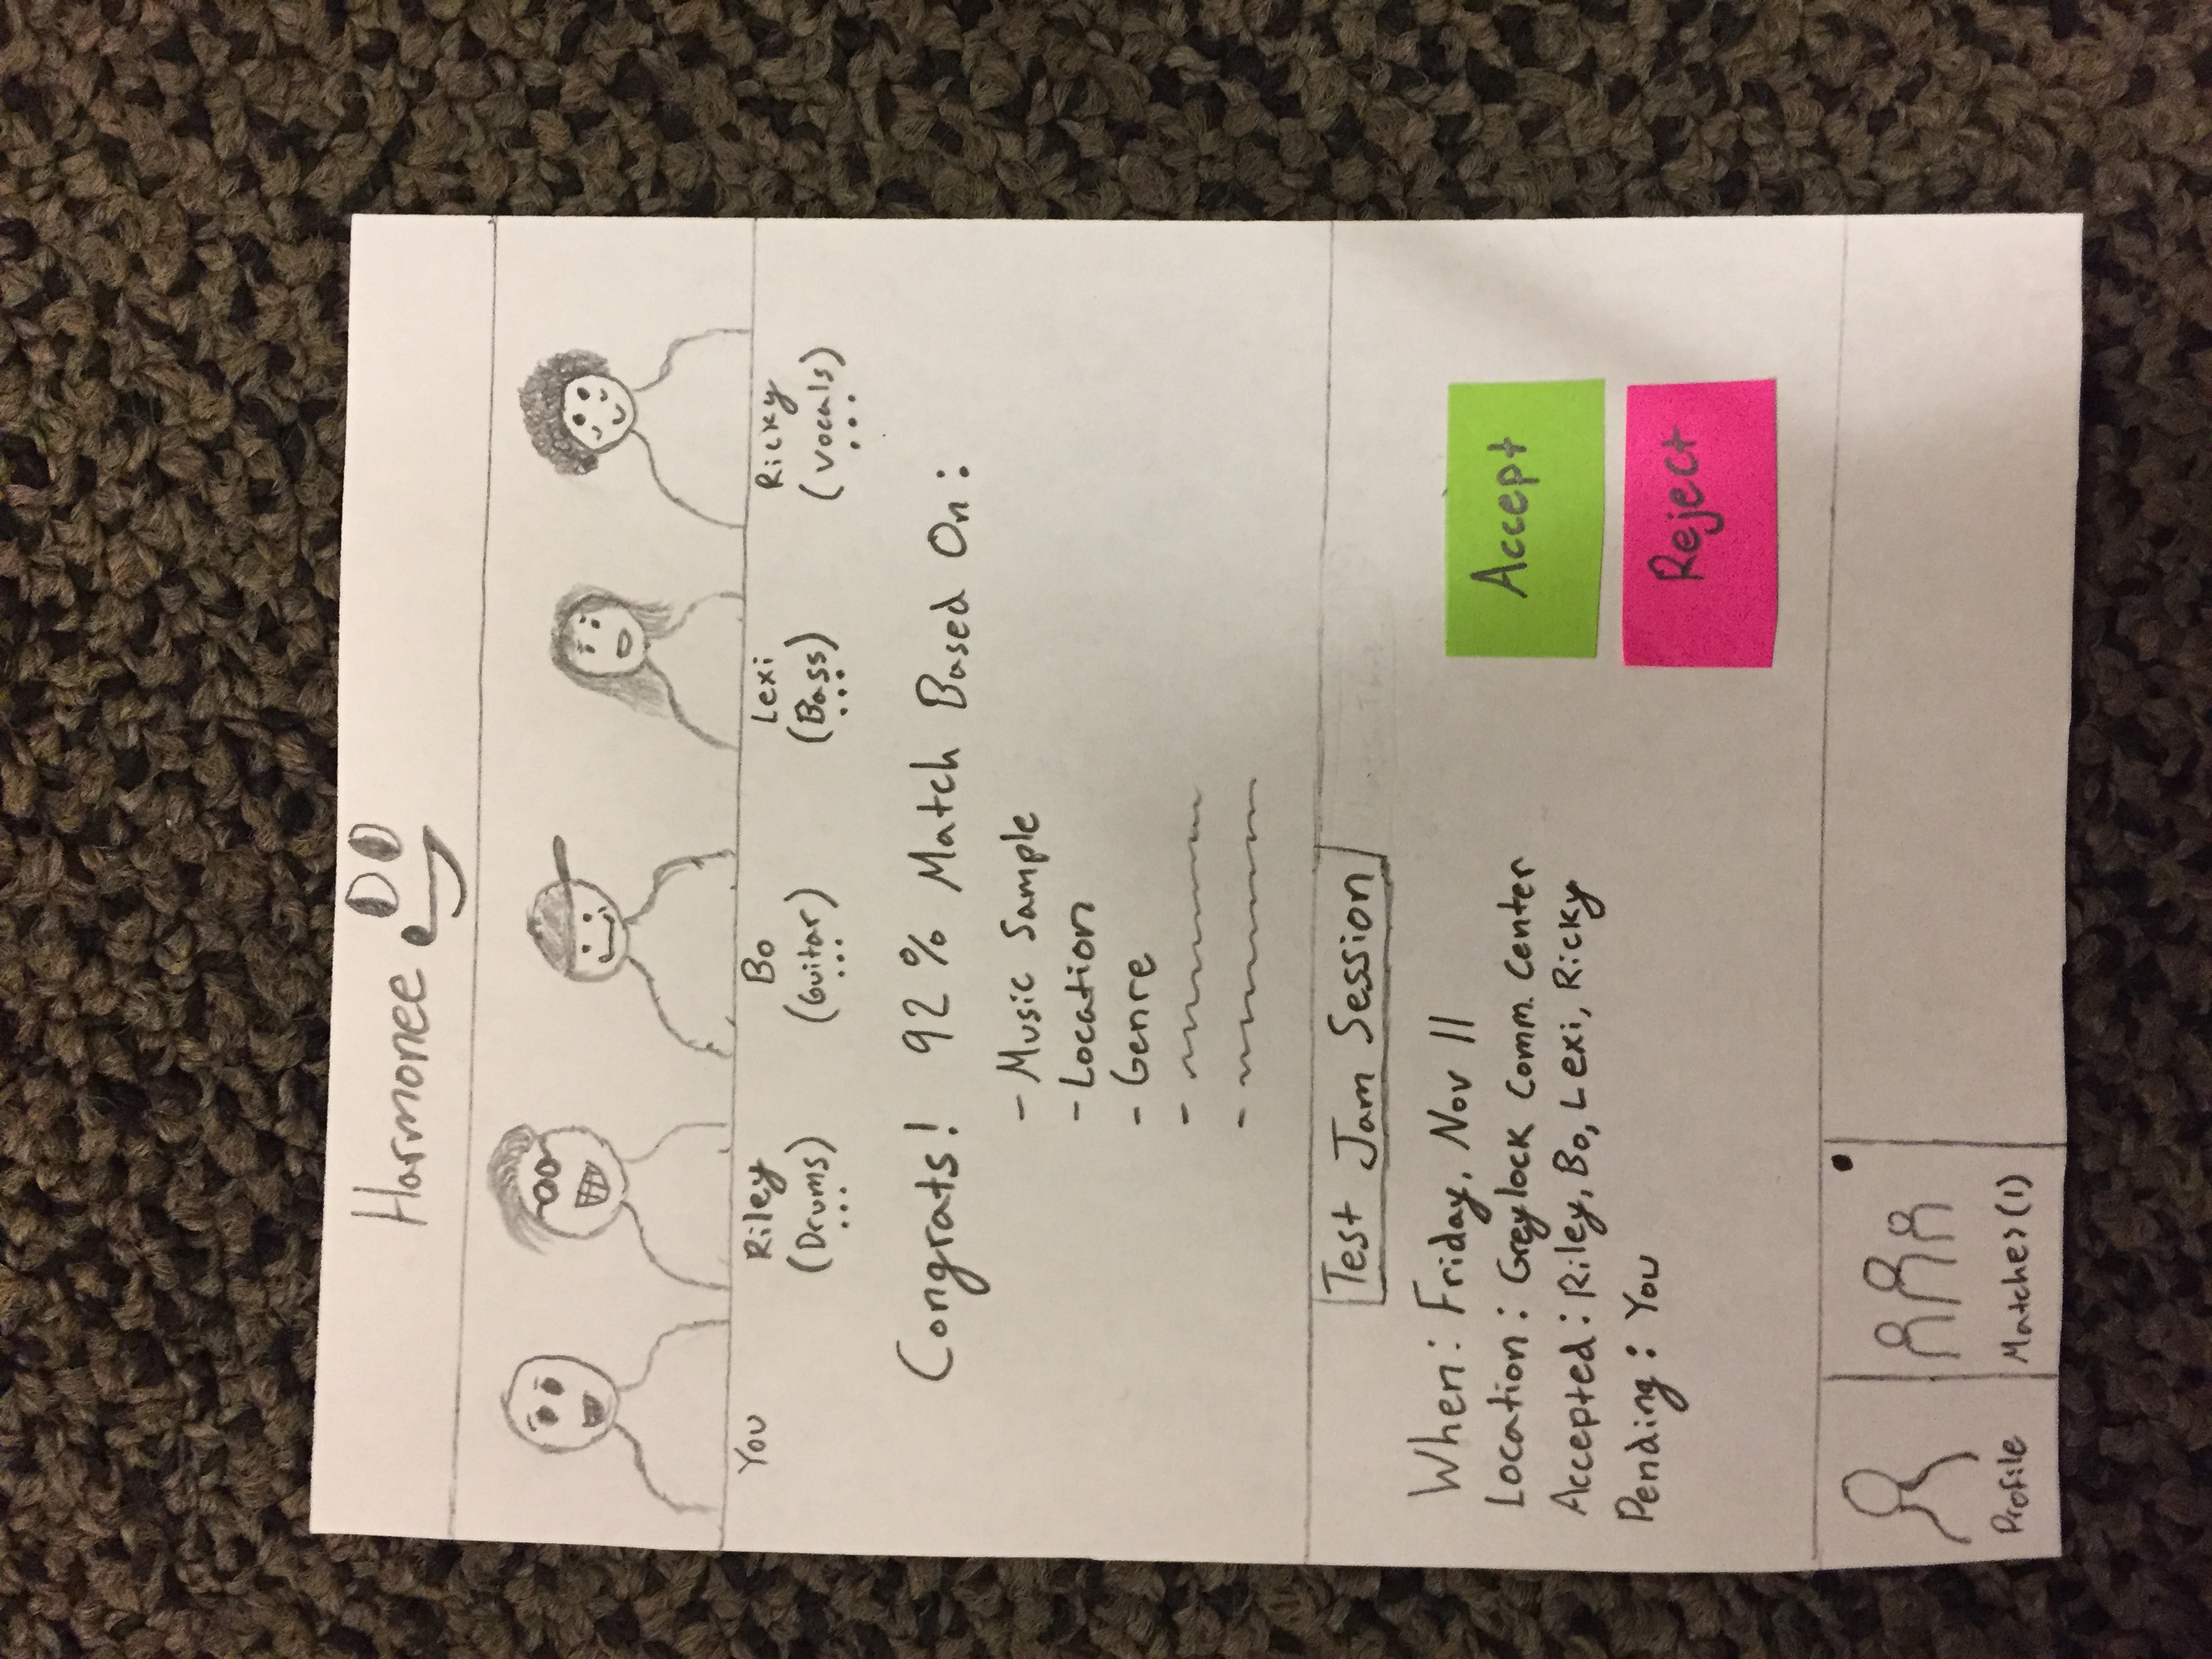 Harmonee
You Riley Bo Lexi Ricky
(Drums) (Guitar) (Bass) (vocals)
... ... ... ...
Congrats! 92% Match Based On:
- Music Sample
- Location
- Genre
-
-
Test Jam Session
When: Friday, Nov 11
Location: Greylock Comm. Center
Accepted: Riley, Bo, Lexi, Ricky
Pending: You
Accept
Reject
Profile
Matches (1)